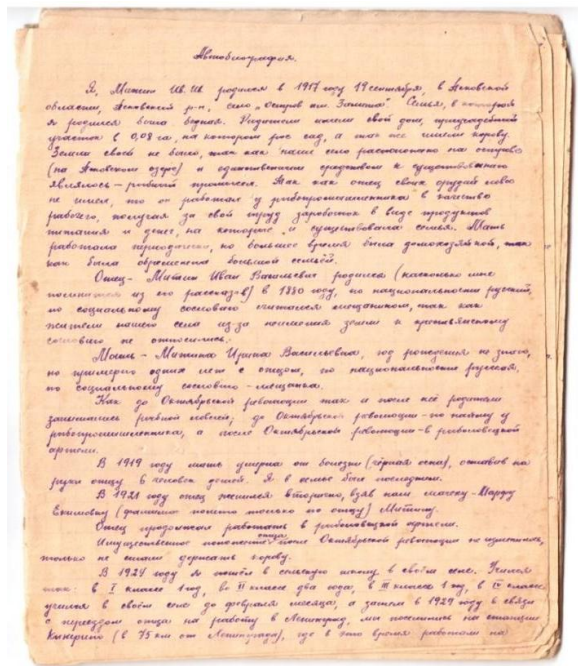 Автобиография.
Я, Митин Ив. Ив. родился в 1917 году 19 сентября, в Псковской
области, Псковский р-н, село „Остров им. Залита". Семья, в которой
я родился была бедная. Родители имели свой дом, приусадебный
участок в 0,08 га, на котором рос сад, а так же имели корову.
Земли своей не было, так как наше село расположено на острове
(на Псковском озере) и единственным средством к существованию
являлось – рыбный промысел. Так как отец своих орудий лова
не имел, то он работал у рыбопромышленника в качестве
рабочего, получая за свой труд заработок в виде продуктов
питания и денег, на которые и существовала семья. Мать
работала периодически, но большее время была домохозяйкой, так
как была обременена большой семьёй.
Отец – Митин Иван Васильевич родился (насколько мне
помнится из его рассказов) в 1880 году, по национальности русский,
по социальному сословию считался мещанином, так как
жители нашего села из-за неимения земли к крестьянскому
сословию не относились.
Мать – Митина Ирина Васильевна, год рождения не знаю,
но примерно одних лет с отцом, по национальности русская,
по социальному сословию – мещанка.
Как до Октябрьской революции так и после неё родители
занимались рыбной ловлей; до Октябрьской революции – по найму у
рыбопромышленника, а после Октябрьской революции – в рыболовецкой
артели.
В 1919 году мать умерла от болезни (чёрная оспа), оставив на
руки отцу человек детей. Я в семье был последним.
В 1921 году отец женился вторично, взяв нам мачеху – Марфу
Екимовну (фамилию помню только по отцу) Митину.
Отец продолжал работать в рыболовецкой артели.
Имущественное положение отца после Октябрьской революции не изменилось,
только не стали держать корову.
В 1924 году я пошёл в сельскую школу в своём селе. Учился
так: в I классе 1 год, во II классе два года, в III классе 1 год, в IV классе
учился в своём селе до февраля месяца, а затем в 1929 году в связи
с переездом отца на работу в Ленинград, мы поселились на станции
Кикерино (в 75 км от Ленинграда), где в это время работали на